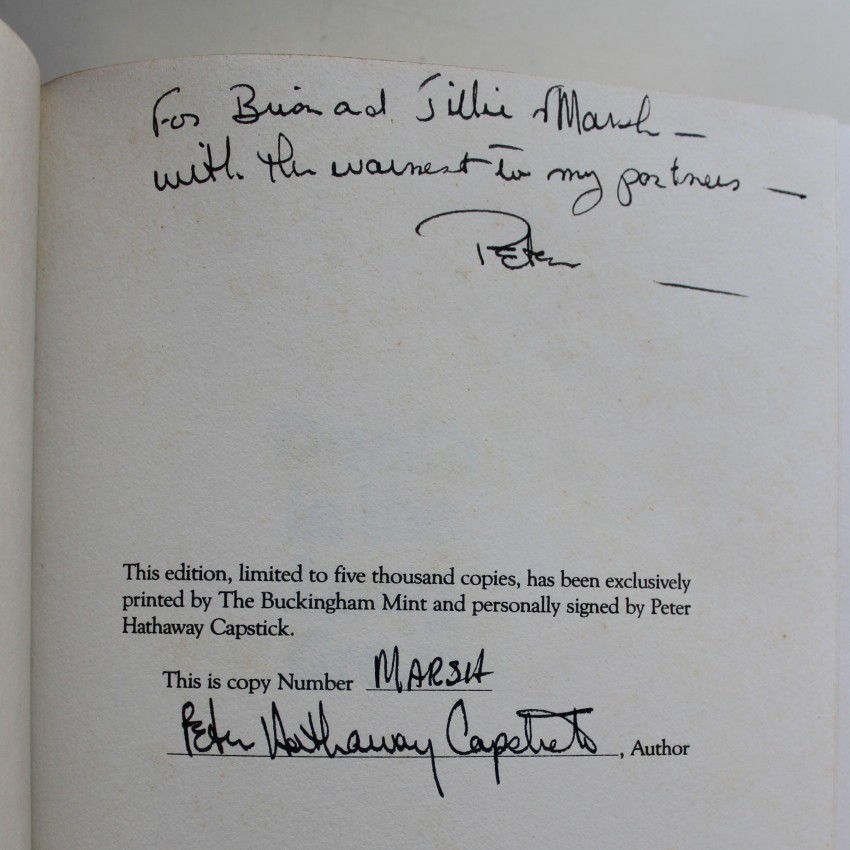 For Brian and Jillie Marsh —
with the warmest to my partners —
Peter —
This edition, limited to five thousand copies, has been exclusively
printed by The Buckingham Mint and personally signed by Peter
Hathaway Capstick.
This is copy Number MARSH
Peter Hathaway Capstick, Author